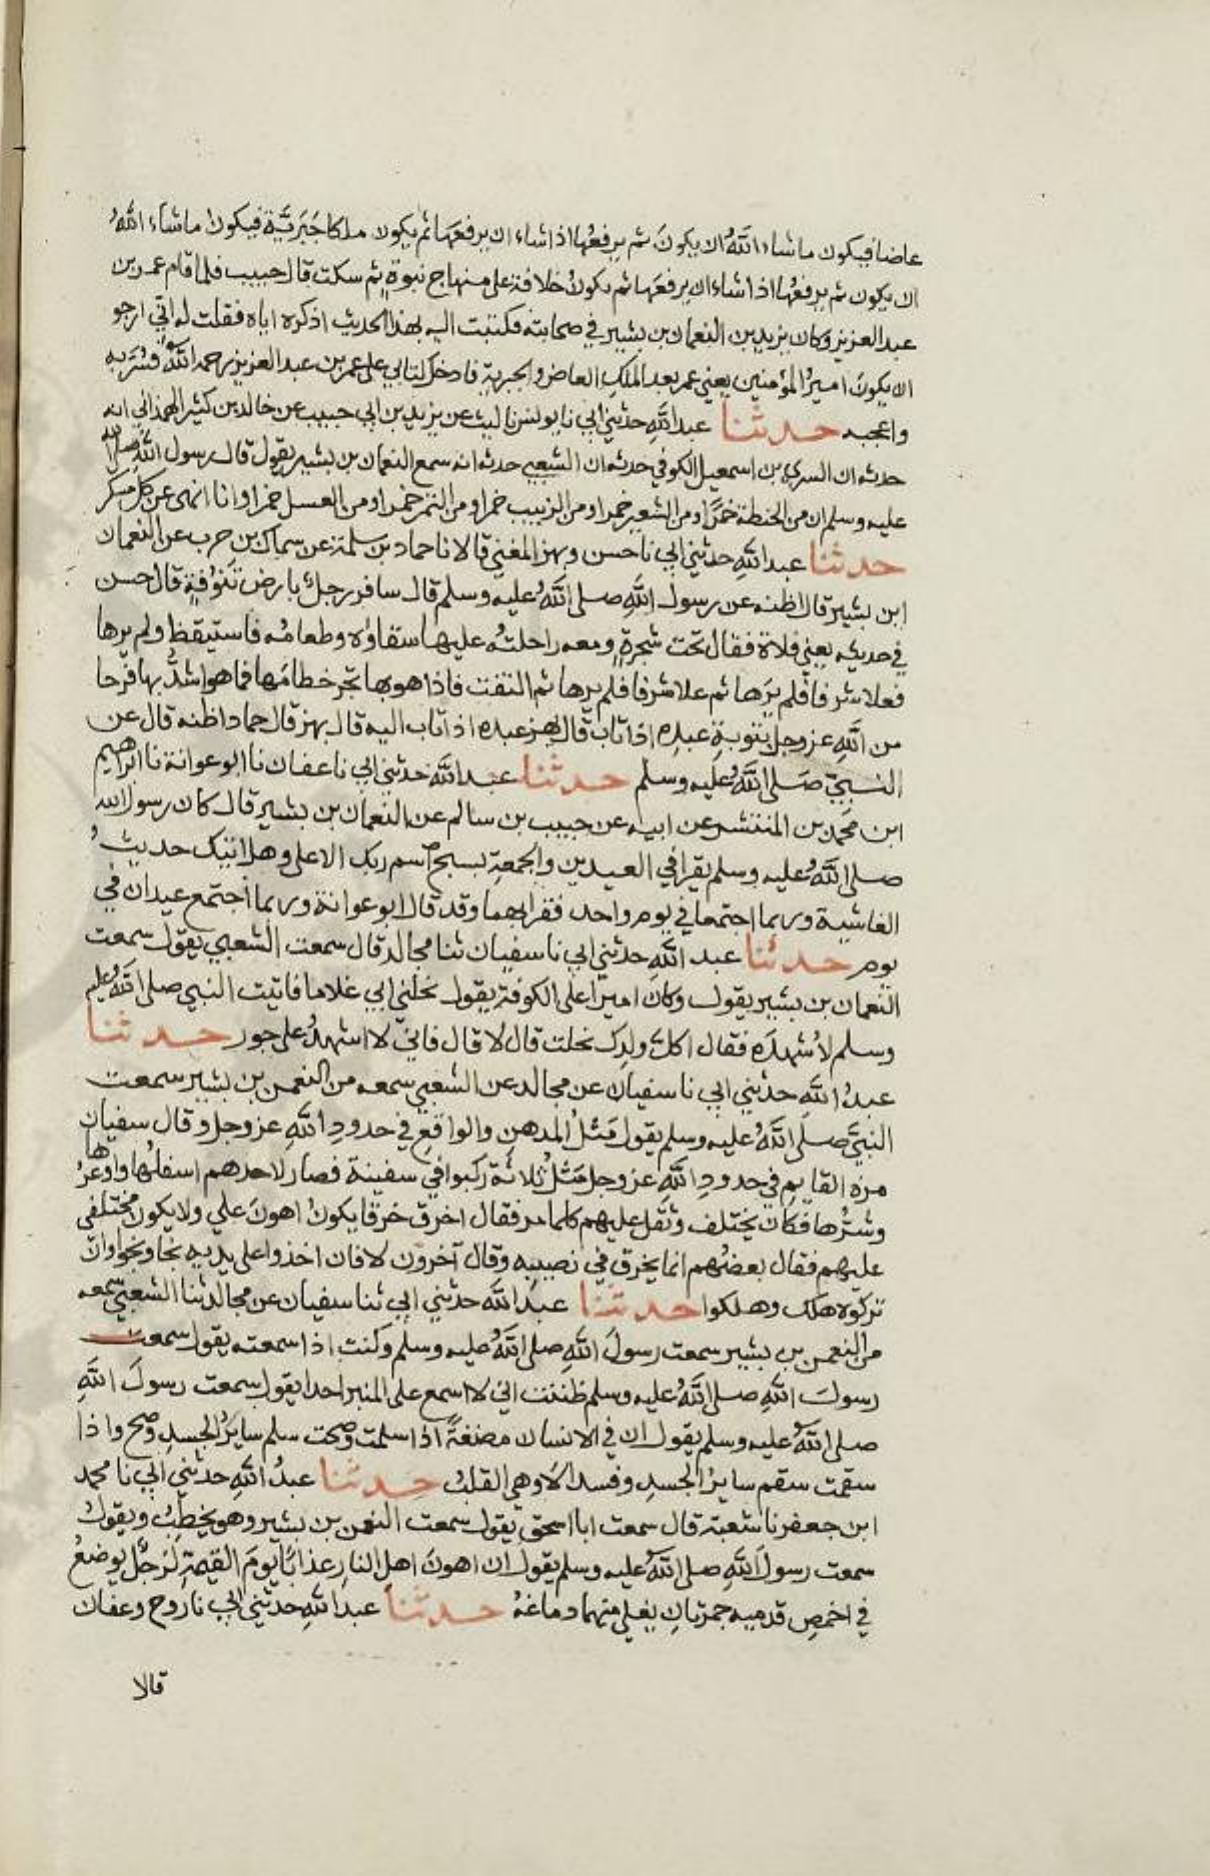 عاضا فيكون ما شاء اللَّهُ ان يكونَ ثم يرفعُها اذا شاء ان يرفعَها ثم يكون ملكا جَبَريَّة فيكون ما شاء اللَّهُ
ان يكون ثم يرفعُها اذا شاء ان يرفعَها ثم يكونُ خلافة على منهاج نبوةٍ ثم سكت قال حبيب فلما قام عمر بن
عبد العزيز وكان يزيد بن النعمان بن بشير في صحابته فكتبت اليه بهذا الحديث اذكره اياه فقلت له اني ارجو
ان يكونَ اميرُ المؤمنين يعني عمر بعد الملكِ العاض والجبرية فادخل كتابي على عمر بن عبد العزيز رحمه اللَّه فسُرَّ به
واعجبه حدثنا عبد اللَّهِ حدثني ابي نا يونس نا ليث عن يزيد بن ابي حبيب عن خالد بن كثير الهمذاني انه
حدثه ان السري بن اسمعيل الكوفي حدثه ان الشعبي حدثه انه سمع النعمان بن بشير يقول قال رسول اللَّهِ صلى الله
عليه وسلم ان من الحنطة خمرًا ومن الشعير خمرا ومن الزبيب خمرا ومن التمر خمرا ومن العسل خمرا وانا انهى عن كل مسكر
حدثنا عبد اللَّهِ حدثني ابي نا حسن وبهز المعنى قالا نا حماد بن سلمة عن سماك بن حرب عن النعمان
ابن بشير قال اظنه عن رسول اللَّهِ صلى اللَّهُ عليه وسلم قال سافر رجلٌ بارض تَنُوفةٍ قال حسن
في حديثه يعني فلاة فقال تحت شجرةٍ ومعه راحلتُه عليها سقاؤه وطعامُه فاستيقظ ولم يرها
فعلا شرفا فلم يرَها ثم علا شرفا فلم يرها ثم التفت فاذا هو بها تجر خطامَها فما هو اشدُّ بها فرحا
من اللَّهِ عز وجل بتوبةِ عبدِه اذا تاب قال بهز عبده اذا تاب اليه قال بهز قال حماد اظنه قال عن
النبيِّ صَلى اللَّهُ عليه وسلم حدثنا عبد اللَّه حدثني ابي نا عفان نا ابو عوانة نا ابراهيم
ابن محمد بن المنتشر عن ابيه عن حبيب بن سالم عن النعمان بن بشير قال كان رسول الله
صلى اللَّهُ عليه وسلم يقرا في العيدين والجمعةِ بسبح اسم ربك الاعلى وهل اتيك حديثُ
الغاشية وربما اجتمعا في يوم واحد فقرا بهما وقد قال ابو عوانة وربما اجتمع عيدان في
يوم حدثنا عبد اللَّهِ حدثني ابي نا سفيان ثنا مجالد قال سمعت الشعبي يقول سمعت
النعمان بن بشير يقول وكان اميرًا على الكوفة يقول نحلني ابي غلاما فاتيت النبي صلى اللَّهُ عليه
وسلم لأُشهدَه فقال اكلَّ ولدِك نحلت قال لا قال فاني لا اشهدُ على جور حدثنا
عبدُ اللَّهِ حدثني ابي نا سفيان عن مجالد عن الشعبي سمعه من النعمن بن بشير سمعت
النبيَّ صلى اللَّهُ عليه وسلم يقول مَثلُ المدهنِ والواقعِ في حدودِ اللَّهِ عز وجل وقال سفيان
مرة القايمِ في حدودِ اللَّهِ عز وجل مَثلُ ثلاثةٍ ركبوا في سفينة فصار لاحدهم اسفلُها واوعرُها
وشرُّها فكان يختلف وثقل عليهم كلما مر فقال اخرق خرقا يكونُ اهونَ علي ولا يكون مختلفي
عليهم فقال بعضُهم انما يخرق في نصيبِه وقال آخرون لا فان اخذوا على يديه نجا ونجوا وان
تركوه هلك وهلكوا حدثنا عبدُ اللَّه حدثني ابي ثنا سفيان عن مجالد ثنا الشعبي سمعه
من النعمن بن بشير سمعت رسولَ اللَّهِ صلى اللَّهُ عليه وسلم وكنت اذا سمعته يقول سمعت
رسولَ اللَّهِ صلى اللَّهُ عليه وسلم ظننت اني لا اسمع على المنبر احدا يقول سمعت رسولَ اللَّهِ
صلى اللَّهُ عليه وسلم يقول ان في الانسان مضغةً اذا سلمت وصحت سلم سايرُ الجسدِ وصح واذا
سقمت سقم سايرُ الجسدِ وفسد الا وهي القلبُ حدثنا عبدُ اللَّهِ حدثني ابي نا محمد
ابن جعفر نا شعبة قال سمعت ابا اسحق يقول سمعت النعمن بن بشير وهو يخطبُ ويقول
سمعت رسولَ اللَّهِ صلى اللَّهُ عليه وسلم يقول ان اهونَ اهلِ النارِ عذابًا يومَ القيمةِ لرَجلٌ يوضعُ
في اخمصِ قدميه جمرتانِ يغلي منهما دماغهُ حدثنا عبد اللَّهِ حدثني ابي نا روح وعفان
قالا